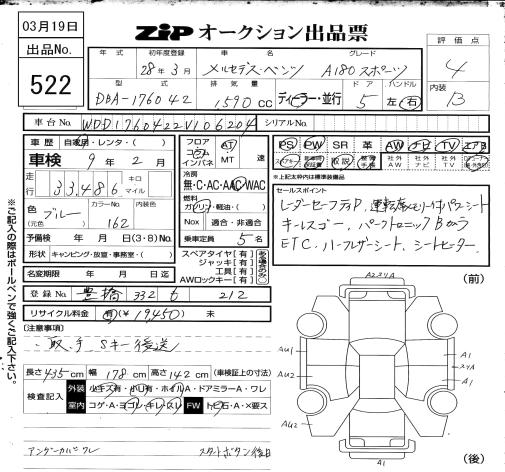 03月19日
ZIP オークション出品票
出品No.
522
年式
初年度登録 28年3月
車名 メルセデスベンツ
グレード A180スポーツ
評価点 4
型式 DBA-176042
排気量 1,590cc
ディーラー・並行
ドア 5
ハンドル 左 右
内装 B
車台No. WDD1760422V106204
シリアルNo.
車歴 自家用・レンタ・( )
車検 9年2月
走行 33,486 キロ マイル
色(元色) ブルー
カラーNo. 162
内装色
予備検 年 月 日(3・8)No.
形状 キャンピング・放置・事務室・( )
フロア コラム インパネ
AT MT 速
冷房 無・C・AC・AAC・WAC
燃料 ガソリン・軽油・( )
Nox 適合・非適合
乗車定員 5名
PS PW SR 革 AW ナビ TV エアB
取説
社外AW 社外ナビ 社外TV
*上記太わく内は標準装備品
セールスポイント
レーダーセーフティP、運転席メモリー付パワーシート
キーレスゴー、パークトロニック Bカメラ
ETC、ハーフレザーシート、シートヒーター
スペアタイヤ【有】
ジャッキ【有】
工具【有】
AWロックキー【有】
名変期限 年 月 日迄
登録No. 豊橋 332 も 212
リサイクル料金 有(¥19,450) 未
[注意事項]
取、手、Sキー後送
長さ435cm 幅178cm 高さ142cm (車検証上の寸法)
検査記入
外装 小キズ有・小U有・ホイルA・ドアミラーA・ワレ
室内 コゲ・A・ヨゴレ・キレ・スレ
FW トビ石・A・X要ス
アンダーカバーワレ
スタートボタン後日
(前)
A2スリA
AU1
AU2
AU2
A1
スリA
A1
A1
(後)
◇ご記入の際はボールペンで強くご記入下さい。